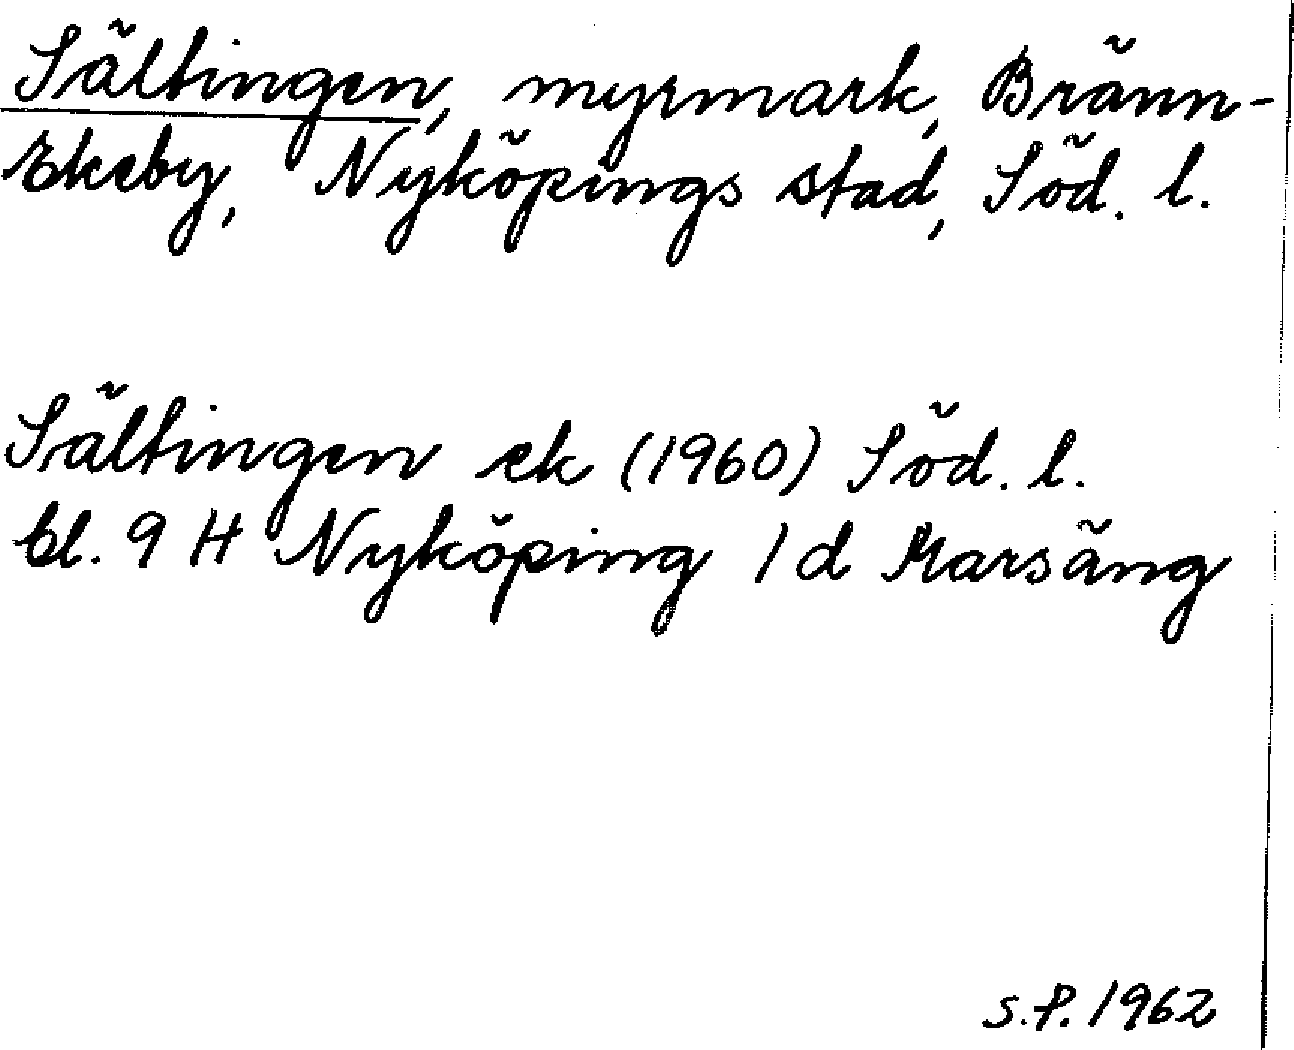 Sältingen, myrmark, Bränn-
Ekeby, Nyköpings stad, Söd. l.
Sältingen ek (1960) Söd. l.
bl. 9 H Nyköping 1 d Marsäng
S.P. 1962